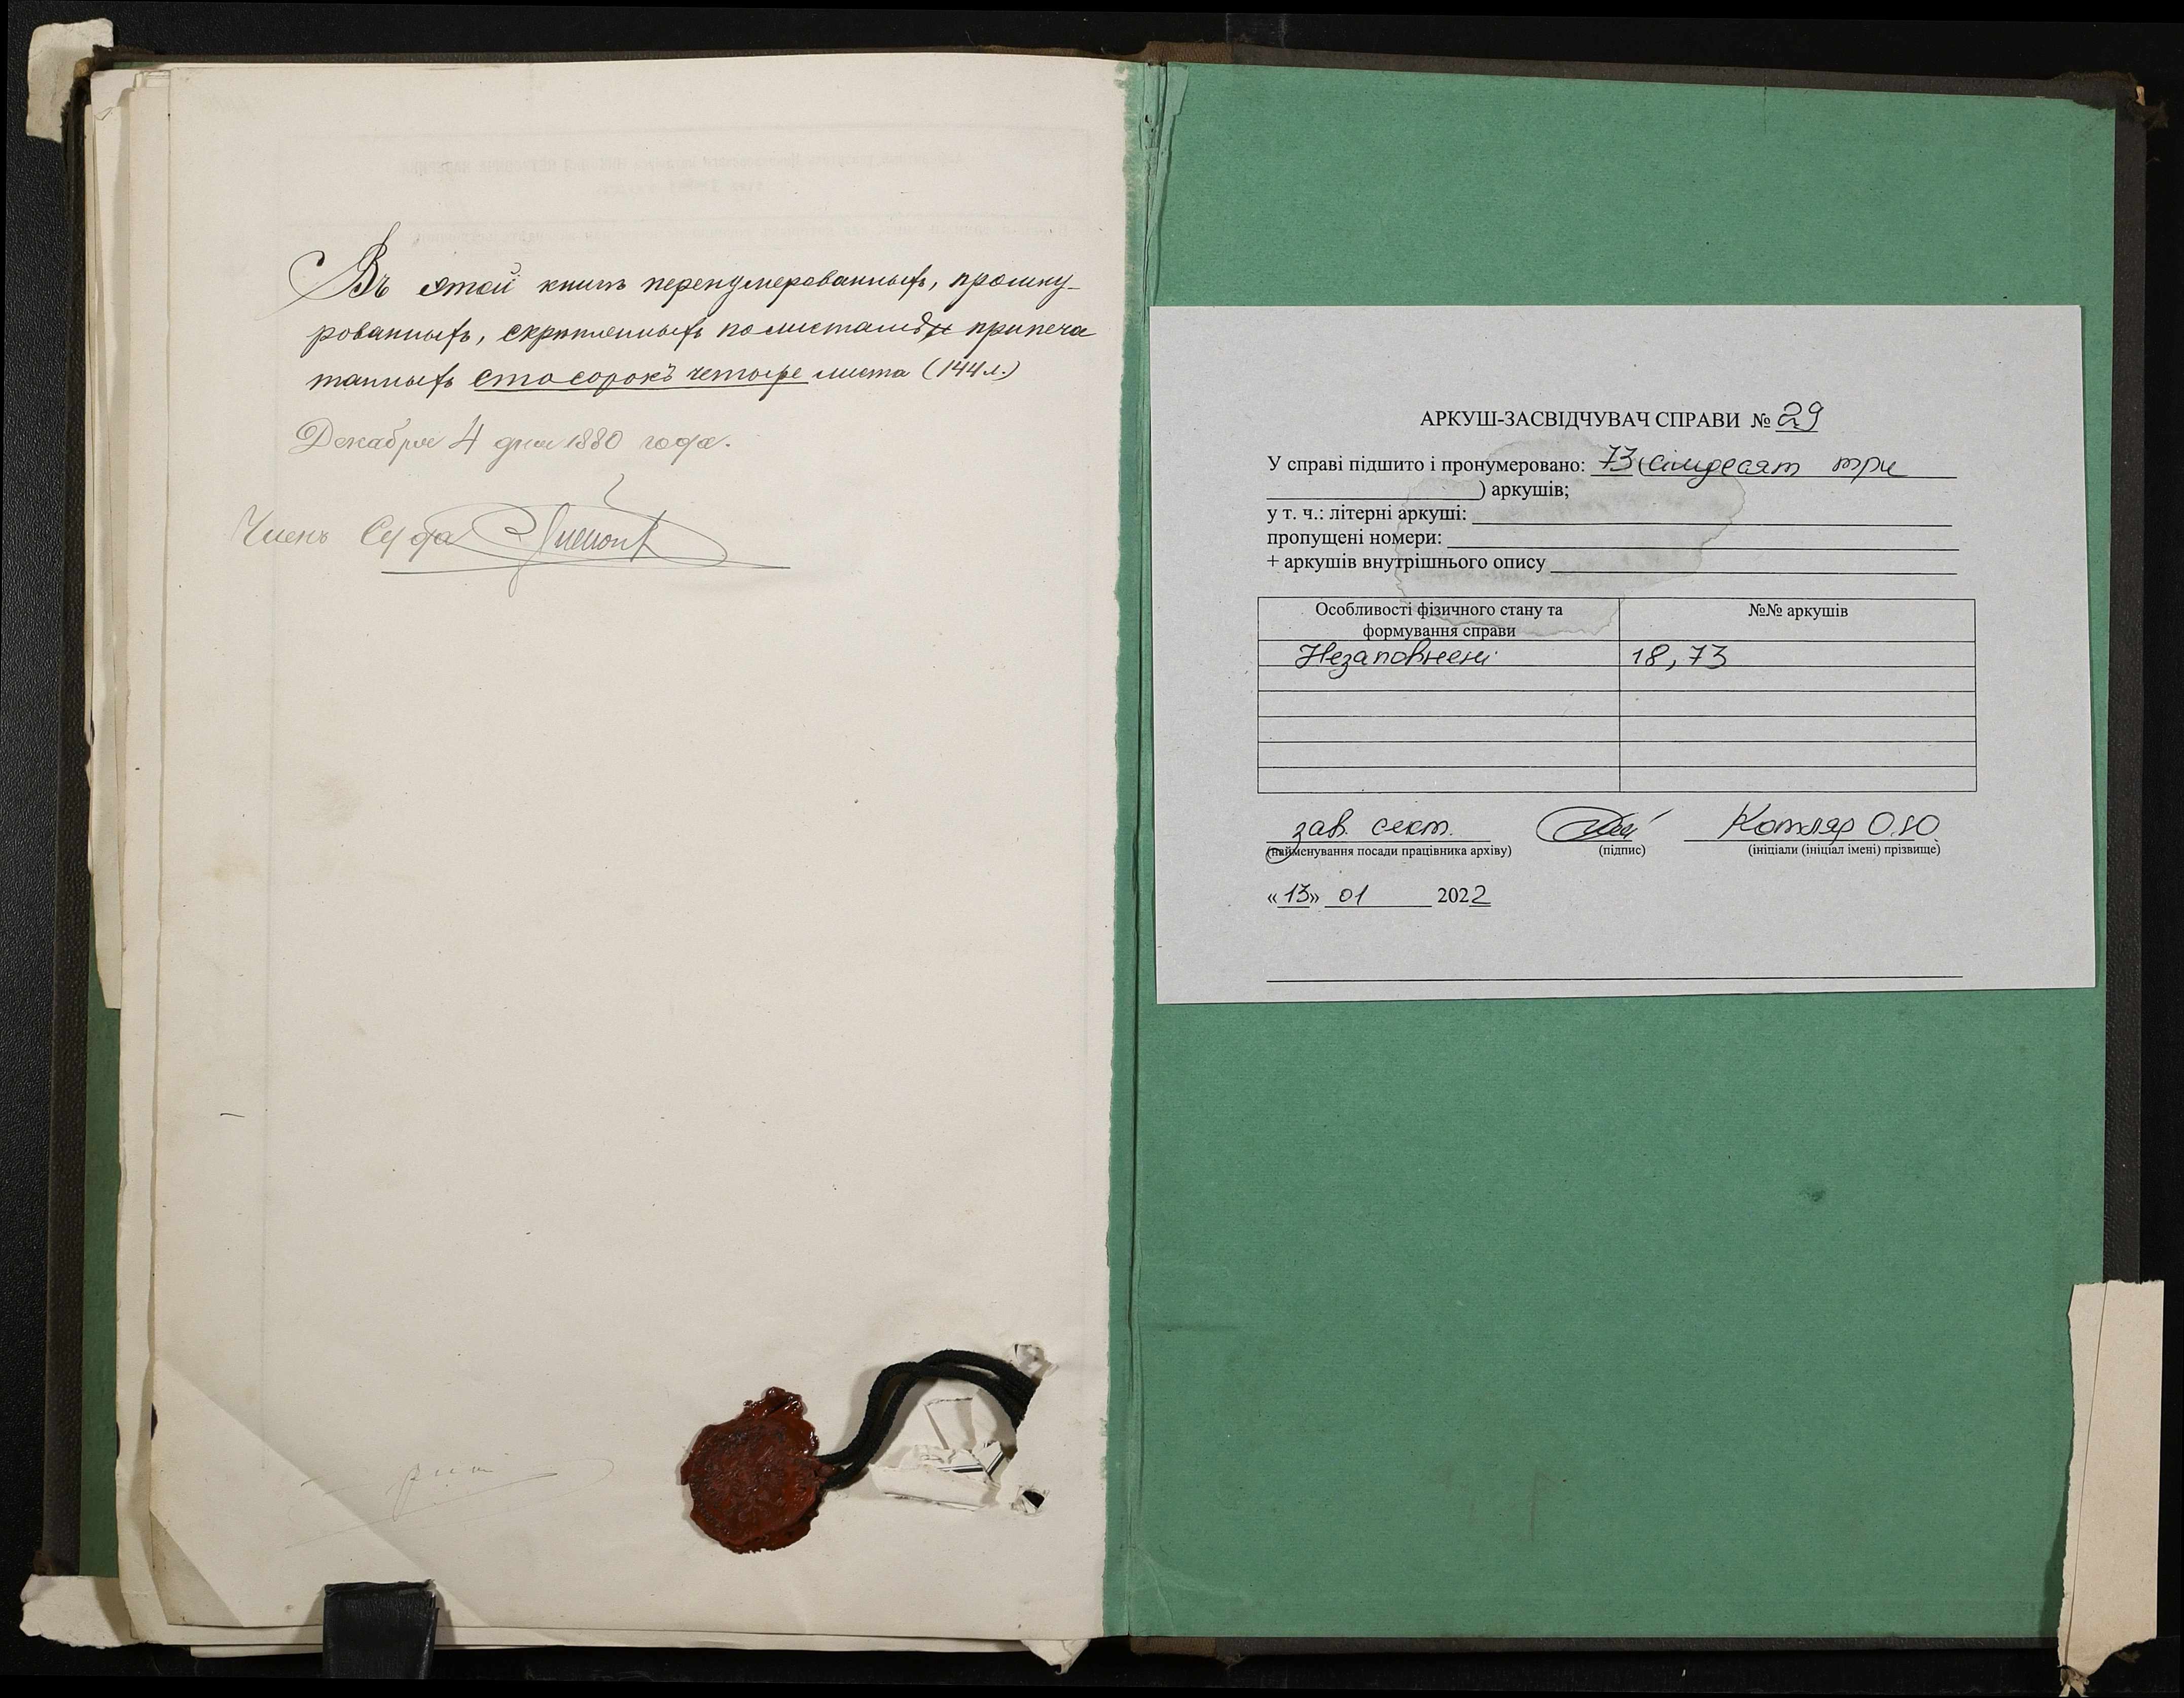 Въ этой книгѣ перенумерованныхъ, прошну-
рованныхъ, скрѣпленныхъ по листамъ и припеча
танныхъ сто сорокъ четыре листа (144 л.)
Декабря 4 дня 1880 года.
Членъ Суда
АРКУШ-ЗАСВІДЧУВАЧ СПРАВИ № 29
У справі підшито і пронумеровано: 73 (сімдесят три
) аркушів;
у т. ч.: літерні аркуші:
пропущені номери:
+ аркушів внутрішнього опису
Особливості фізичного стану та формування справи
№№ аркушів
Незаповнені 18, 73
зав. сект. Котляр О.Ю.
(найменування посади працівника архіву) (підпис) (ініціали (ініціал імені) прізвище)
«13» 01 2022